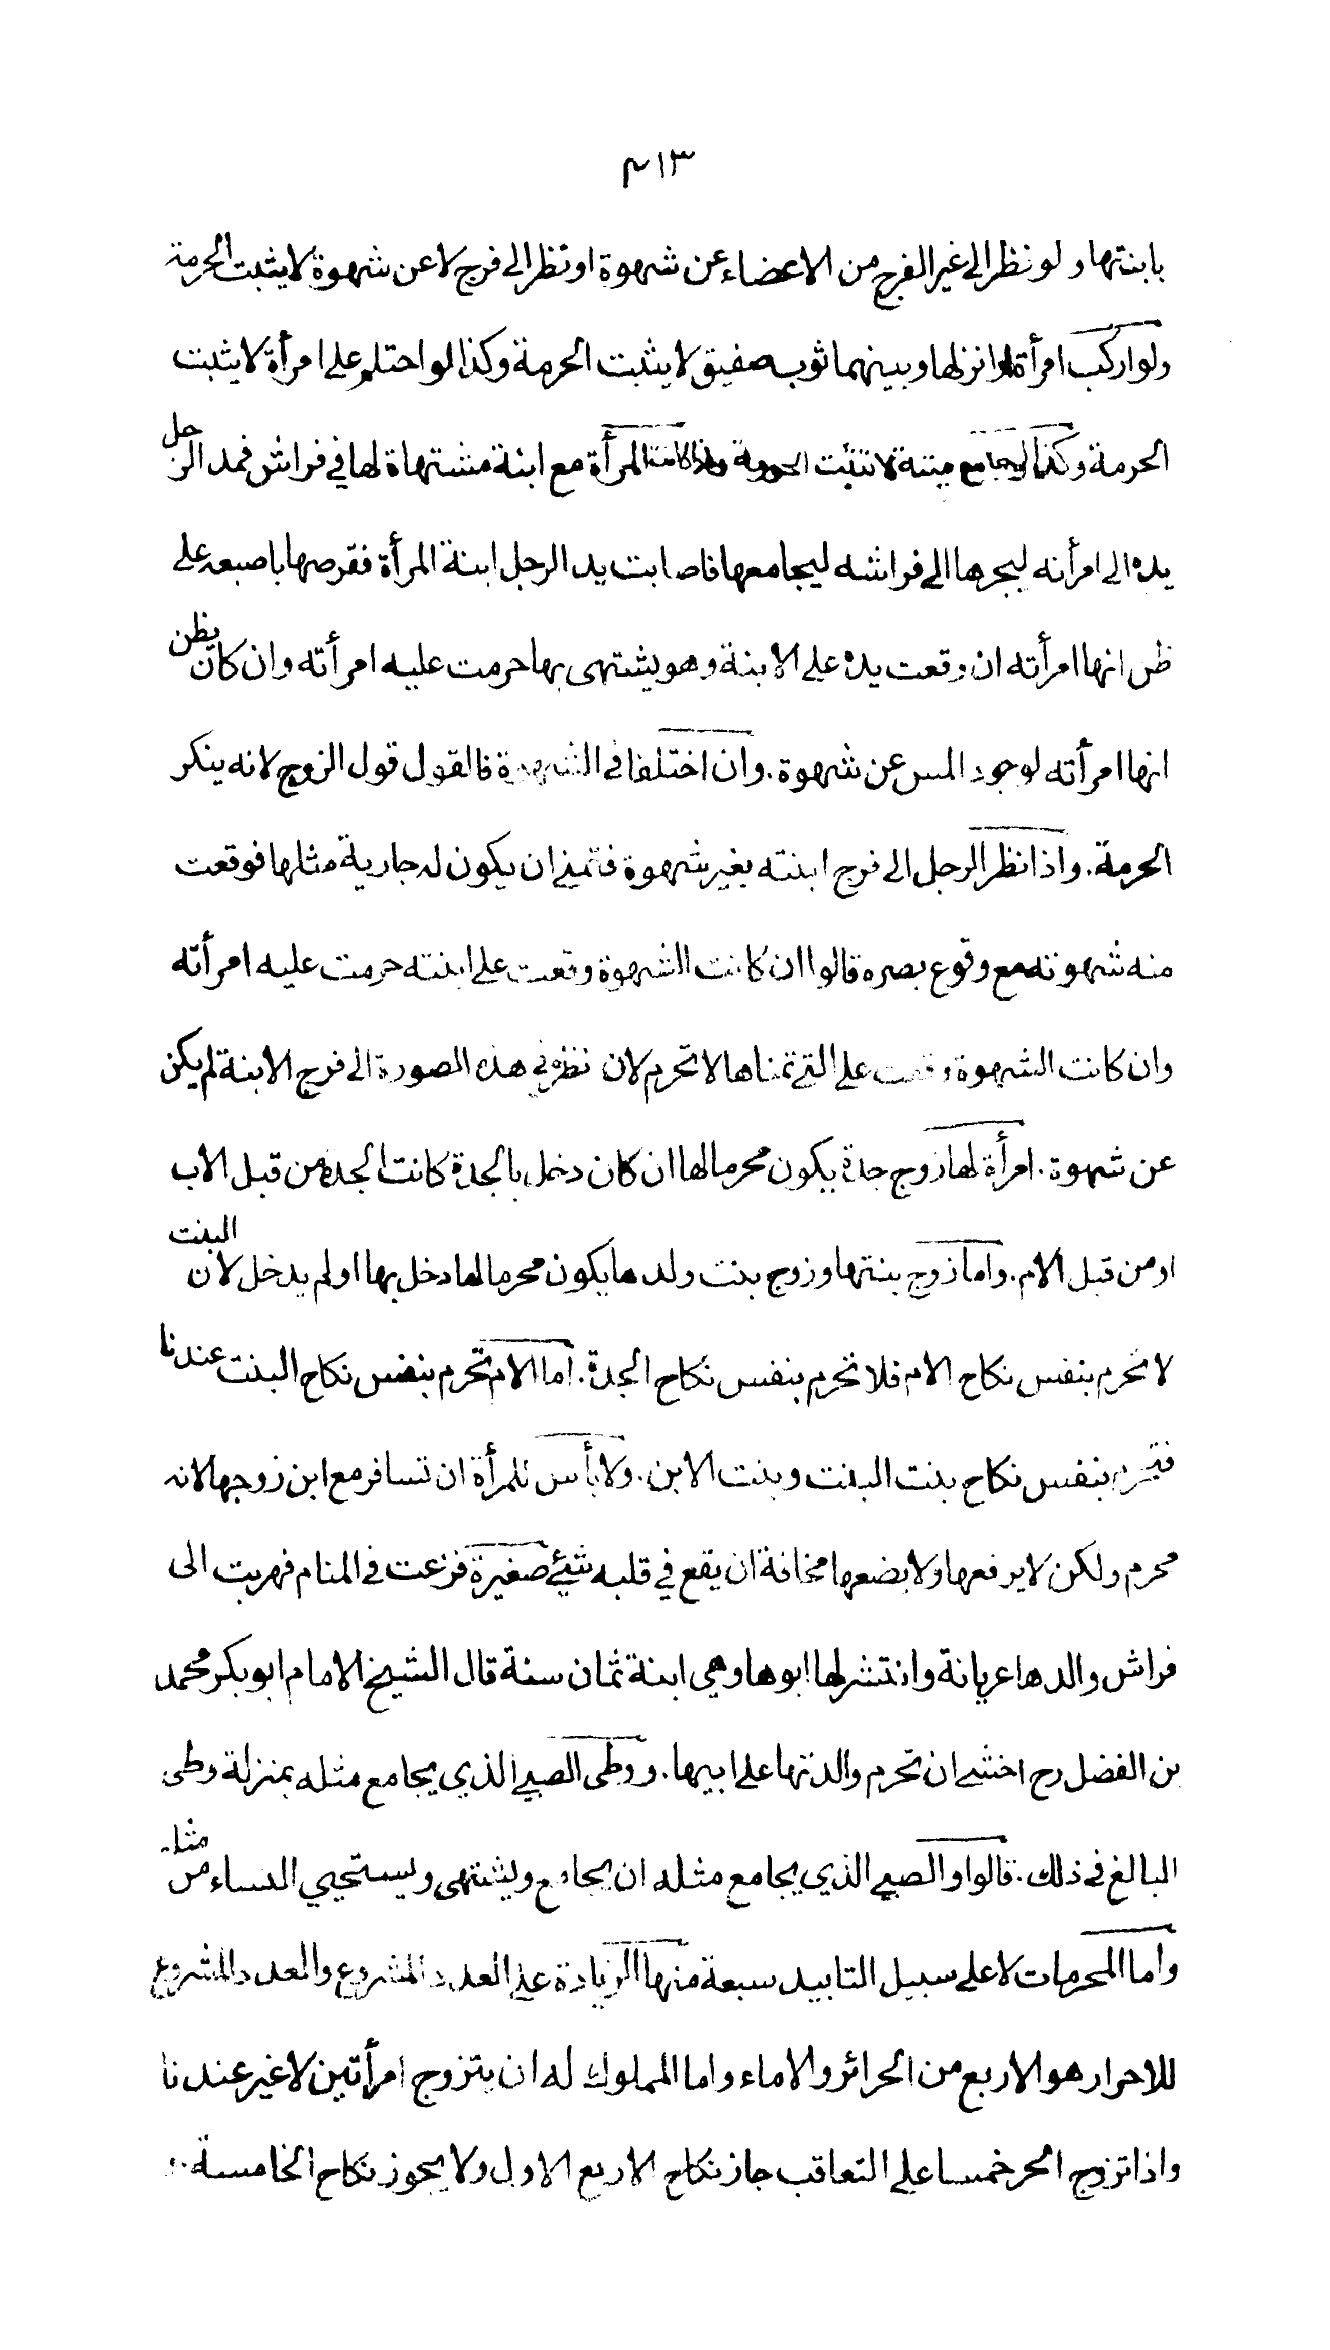 ٤١٣
بابنتها ولو نظر الى غير الفرج من الاعضاء عن شهوة او نظر الى فرج لا عن شهوة لا يثبت الحرمة
ولو اركب امرأة وانزلها وبينهما ثوب صفيق لا يثبت الحرمة وكذا لو احتلم على امرأة لا يثبت
الحرمة وكذا لو جامع ميتة لا تثبت الحرمة واذا كانت المرأة مع ابنة مشتهاة لها في فراش فمد الرجل
يده الى امرأته ليجرها الى فراشه ليجامعها فاصابت يد الرجل ابنة المرأة فقرصها باصبعه على
ظن انها امرأته ان وقعت يده على الابنة وهو يشتهى بها حرمت عليه امرأته وان كان يظن
انها امرأته لوجود المس عن شهوة . وان اختلفا في الشهوة فالقول قول الزوج لانه ينكر
الحرمة . واذا نظر الرجل الى فرج ابنته بغير شهوة فتمنى ان يكون له جارية مثلها فوقعت
منه شهوته مع وقوع بصره قالوا ان كانت الشهوة وقعت على ابنته حرمت عليه امرأته
وان كانت الشهوة وقعت على التي تمناها لا تحرم لان نظره في هذه الصورة الى فرج الابنة لم يكن
عن شهوة . امرأة لها زوج جدة يكون محرما لها ان كان دخل بالجدة كانت الجدة من قبل الاب
او من قبل الام . واما زوج بنتها وزوج بنت ولدها يكون محرما لها دخل بها او لم يدخل لان البنت
لا تحرم بنفس نكاح الام فلا تحرم بنفس نكاح الجدة . اما الام تحرم بنفس نكاح البنت عندنا
فتحرم بنفس نكاح بنت البنت وبنت الابن . ولا بأس للمرأة ان تسافر مع ابن زوجها لانه
محرم ولكن لا يرفعها ولا يضعها مخافة ان يقع في قلبه شئ صغيرة فزعت في المنام فهربت الى
فراش والدها عريانة وانتشر لها ابوها وهي ابنة ثمان سنة قال الشيخ الامام ابو بكر محمد
بن الفضل رح اخشى ان تحرم والدتها على ابيها . ووطى الصبي الذي يجامع مثله بمنزلة وطى
البالغ في ذلك . قالوا والصبي الذي يجامع مثله ان يجامع ويشتهى ويستحيي النساء من مثله
واما المحرمات لا على سبيل التابيد سبعة منها الزيادة على العدد المشروع والعدد المشروع
للاحرار هو الاربع من الحرائر والاماء واما المملوك له ان يتزوج امرأتين لا غير عندنا
واذا تزوج الحر خمسا على التعاقب جاز نكاح الاربع الاول ولا يجوز نكاح الخامسة